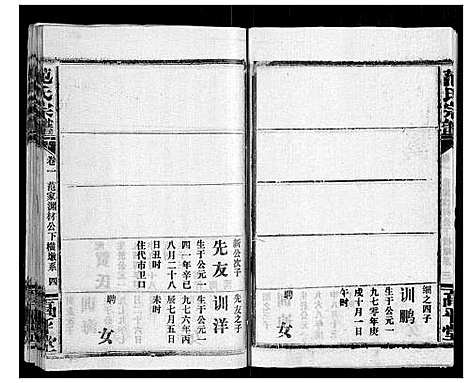 范氏宗譜
高平堂
細之四子
训鹏
生于公元一
九七零年庚
戌十月一日
午时
聘
女
先友之子
训洋
生于公元一
九七六年丙
辰七月五日
未时
聘
女
新公次子
先友
生于公元一
九四一年辛巳
八月二十八
日丑时
住代市卫口
范氏宗譜
卷一
范家渊材公下横墩系
四
高平堂